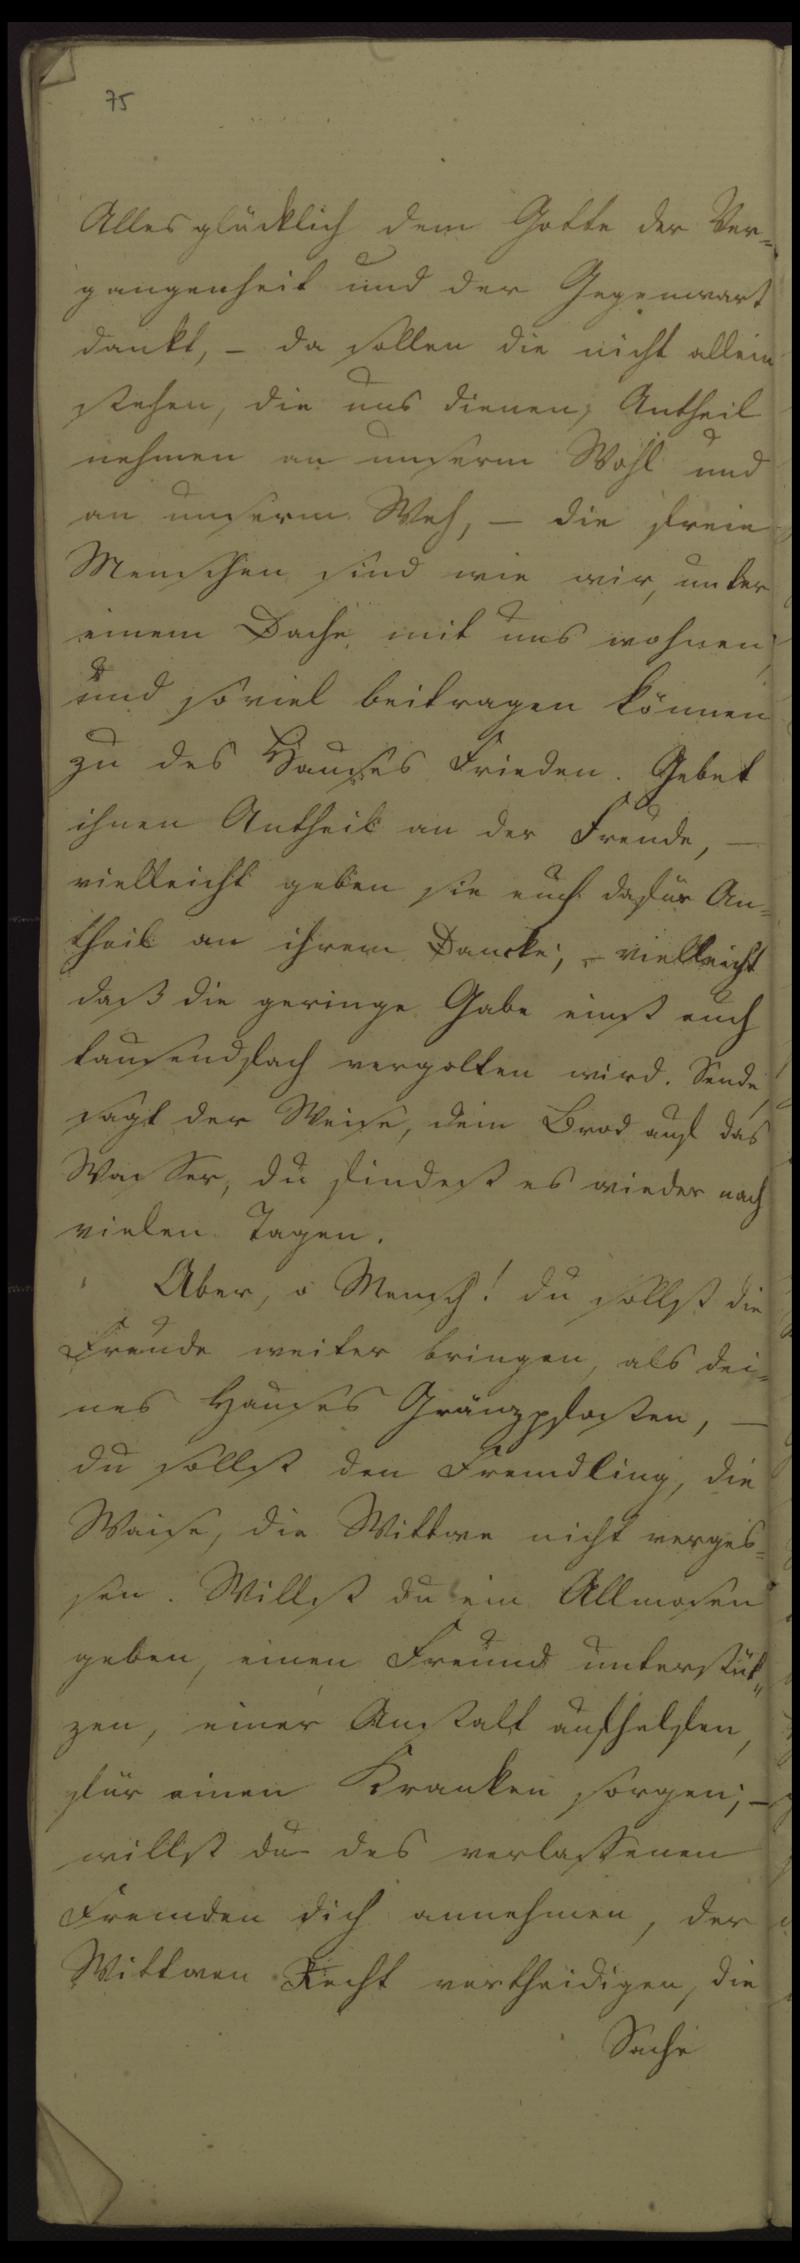 75
Alles glücklich dem Gotte der Ver=
gangenheit und der Gegenwart
dankt, – da sollen die nicht allein
stehen, die uns dienen, Antheil
nehmen an unserm Wohl und
an unserm Weh, – die freie
Menschen sind wie wir, unter
einem Dache mit uns wohnen,
und soviel beitragen können
zu des Hauses Frieden. Gebet
ihnen Antheil an der Freude, –
vielleicht geben sie euch dafür An=
theil an ihrem Dancke; – vielleicht
daß die geringe Gabe einst euch
tausendfach vergolten wird. Sende,
sagt der Weise, dein Brod auf das
Wasser, du findest es wieder nach
vielen Tagen.
Aber, o Mensch! du sollst die
Freude weiter bringen, als dei=
nes Hauses Gränzpfosten, –
du sollst den Fremdling, die
Waise, die Wittwe nicht verges=
sen. Willst du ein Allmosen
geben, einen Freund unterstüt=
zen, einer Anstalt aufhelfen,
für einen Kranken sorgen; –
willst du des verlassenen
Fremden dich annehmen, der
Wittwen Recht vertheidigen, die
Sache